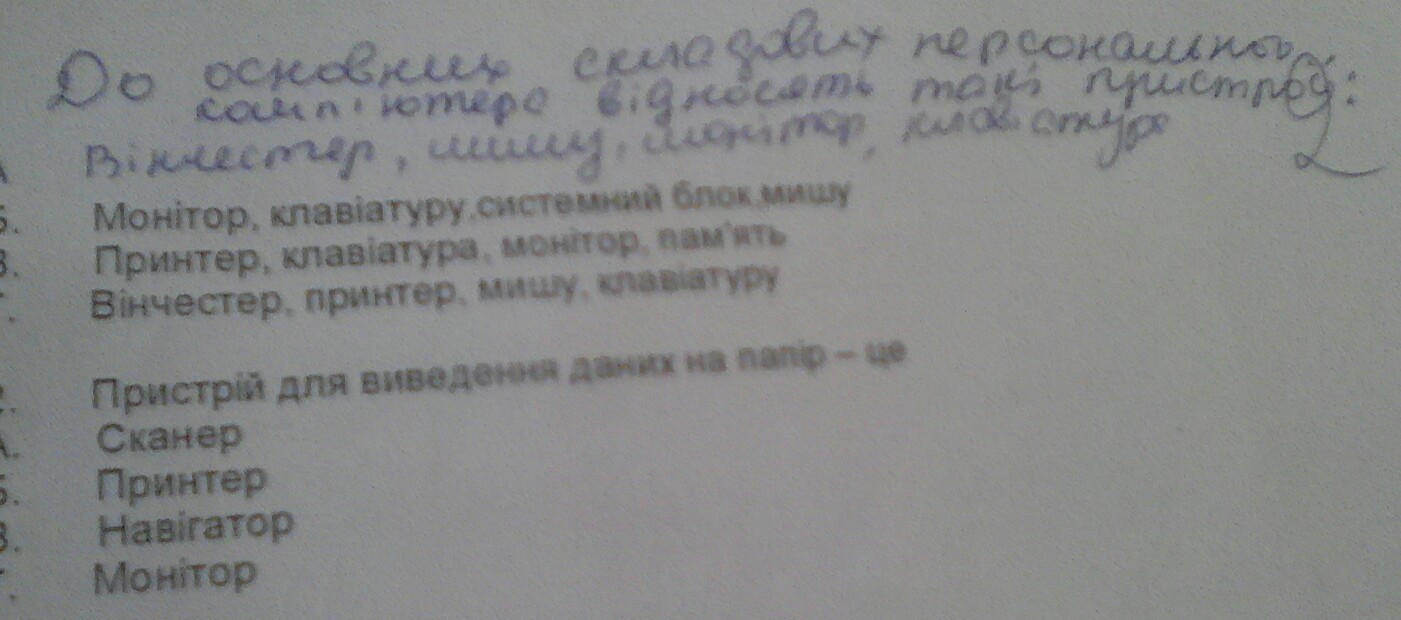 До основних складових персонального
комп'ютера відносять такі пристрої:
А Вінчестер, мишу, монітор, клавіатура
Б. Монітор, клавіатуру,системний блок,мишу
В. Принтер, клавіатура, монітор, пам'ять
Г. Вінчестер, принтер, мишу, клавіатуру
2
2. Пристрій для виведення даних на папір – це
А. Сканер
Б. Принтер
В. Навігатор
Г. Монітор